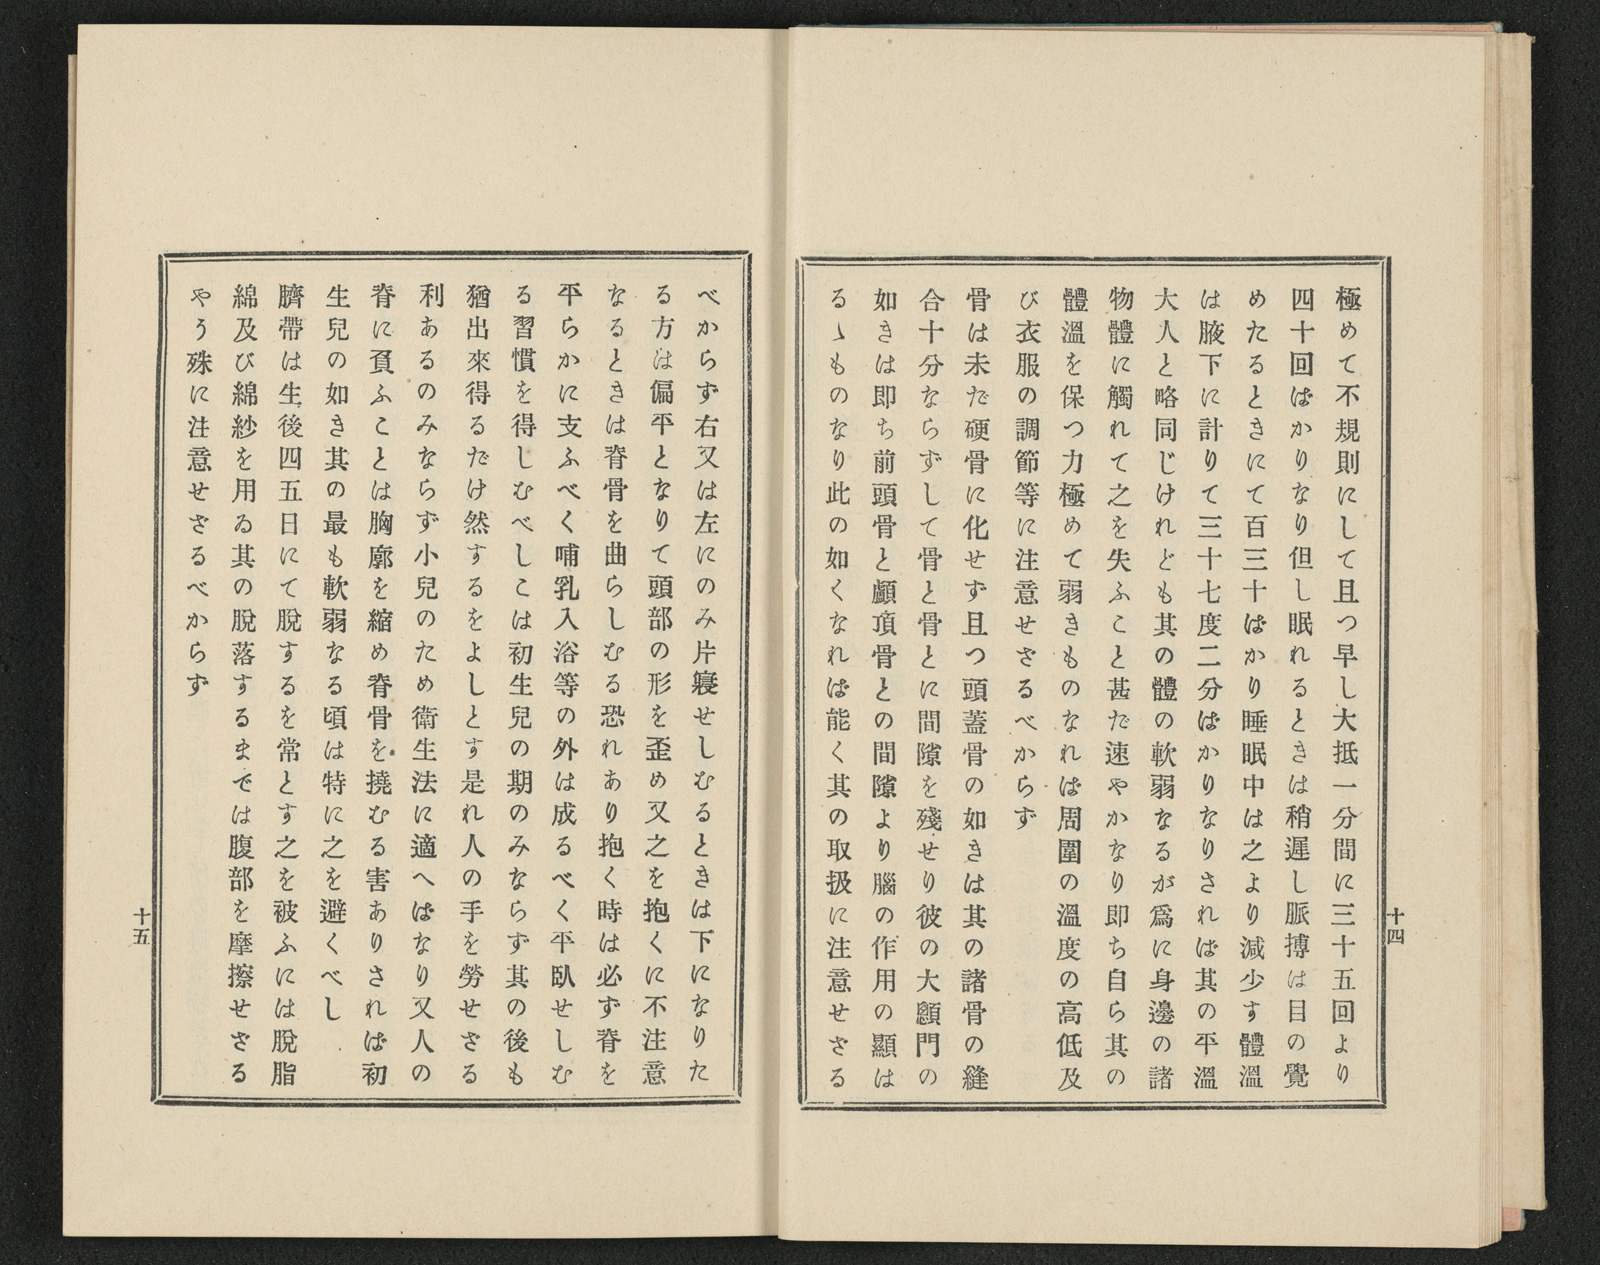 極めて不規則にして且つ早し大抵一分間に三十五回より
四十回ばかりなり但し眠れるときは稍遲し脈搏は目の覺
めたるときにて百三十ばかり睡眠中は之より減少す體溫
は腋下に計りて三十七度二分ばかりなりされば其の平溫
大人と略同じけれども其の體の軟弱なるが爲に身邊の諸
物體に觸れて之を失ふこと甚だ速やかなり即ち自ら其の
體溫を保つ力極めて弱きものなれば周圍の溫度の高低及
び衣服の調節等に注意せざるべからず
骨は未だ硬骨に化せず且つ頭蓋骨の如きは其の諸骨の縫
合十分ならずして骨と骨とに間隙を殘せり彼の大顖門の
如きは即ち前頭骨と顱頂骨との間隙より腦の作用の顯は
るゝものなり此の如くなれば能く其の取扱に注意せざる
十四
べからず右又は左にのみ片寢せしむるときは下になりた
る方は偏平となりて頭部の形を歪め又之を抱くに不注意
なるときは脊骨を曲らしむる恐れあり抱く時は必ず脊を
平らかに支ふべく哺乳入浴等の外は成るべく平臥せしむ
る習慣を得しむべしこは初生兒の期のみならず其の後も
猶出來得るだけ然するをよしとす是れ人の手を勞せざる
利あるのみならず小兒のため衛生法に適へばなり又人の
脊に負ふことは胸廓を縮め脊骨を撓むる害ありされば初
生兒の如き其の最も軟弱なる頃は特に之を避くべし
臍帶は生後四五日にて脫するを常とす之を被ふには脫脂
綿及び綿紗を用ゐ其の脫落するまでは腹部を摩擦せざる
やう殊に注意せざるべからず
十五